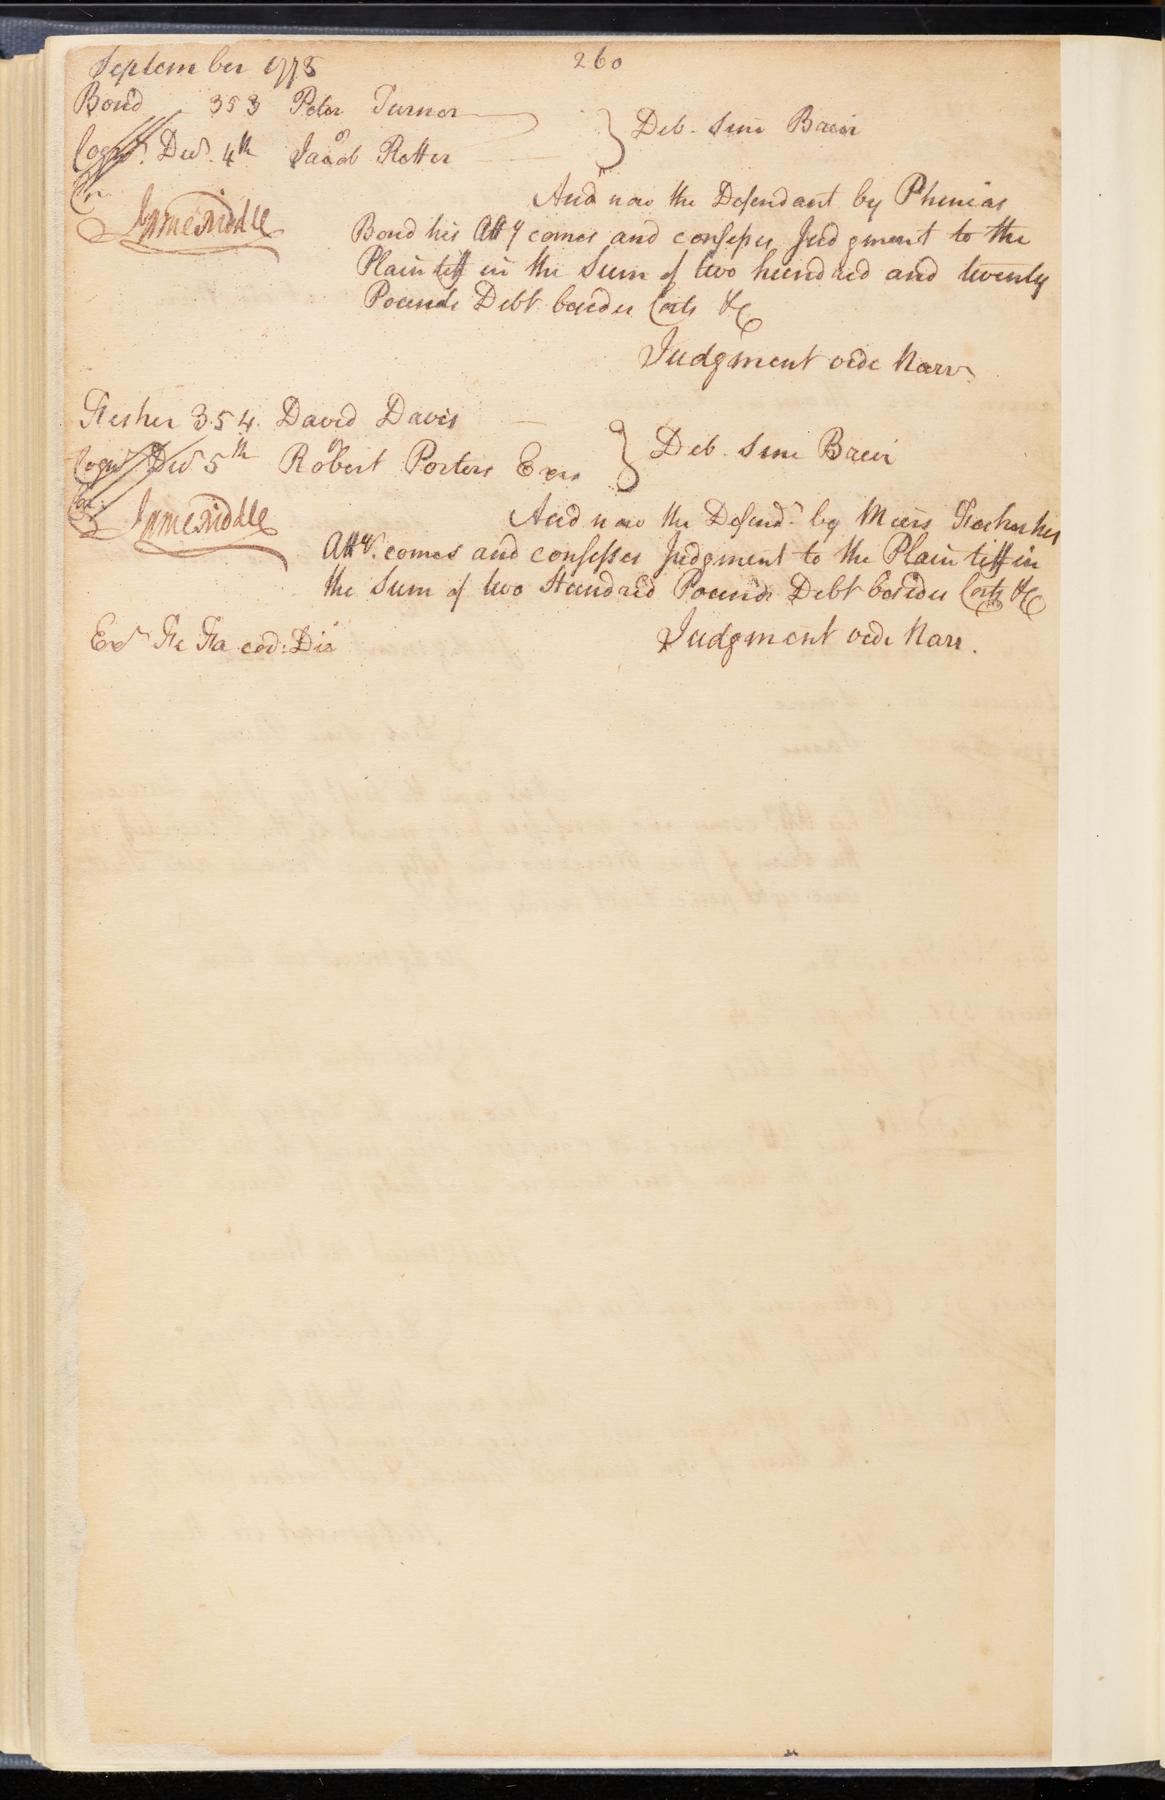 September 1773 260
Bond 353 Peter Turner } Deb. Sine Brevi
Cogn.t Decr. 4th vs Jacob Rotter
And now the Defendant by Phineas
Bond his Atty comes and confesses Judgment to the
Plaintiff in the Sum of two hundred and twenty
Pounds Debt besides Costs &c
Judgment vide Narr.
Fisher 354. David Davis } Deb. Sine Brevi
Cogn.t Decr 5th vs Robert Porters Exrs
And now the Defendt. by Miers Fisher his
Atty. comes and confesses Judgment to the Plaintiff in
the Sum of two Hundred Pounds Debt besides Costs &c
Judgment vide Narr.
Exd Fi Fa eod: Die